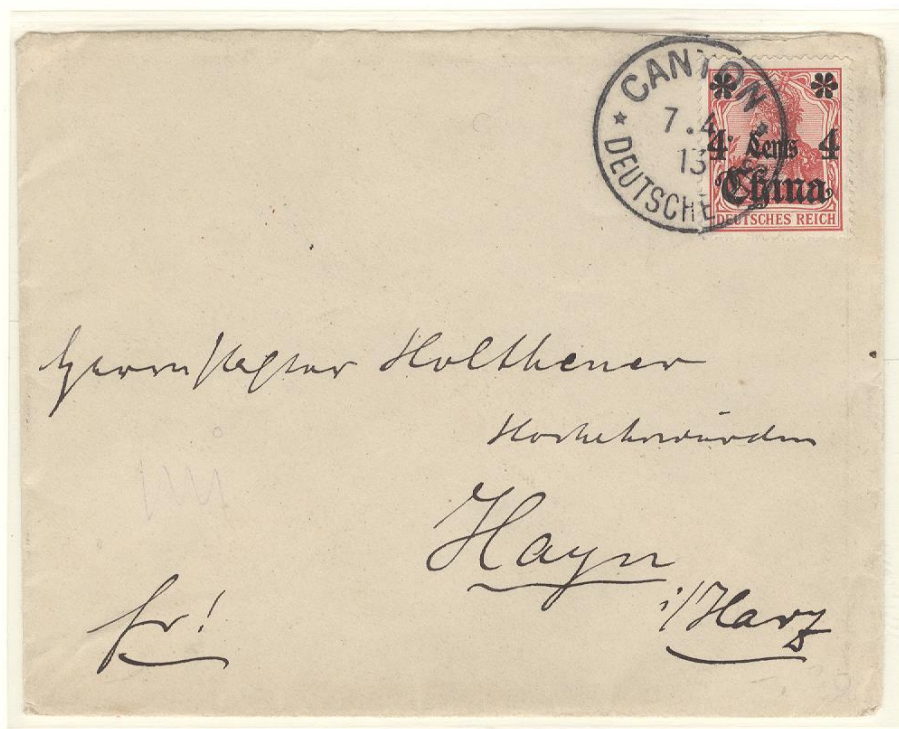 CANTON
7.4.
13
DEUTSCHE
4 Cents 4
China
DEUTSCHES REICH
Herrn Pastor Holtheuer
Hochehrwürden
Hayn
i/Harz
fr!